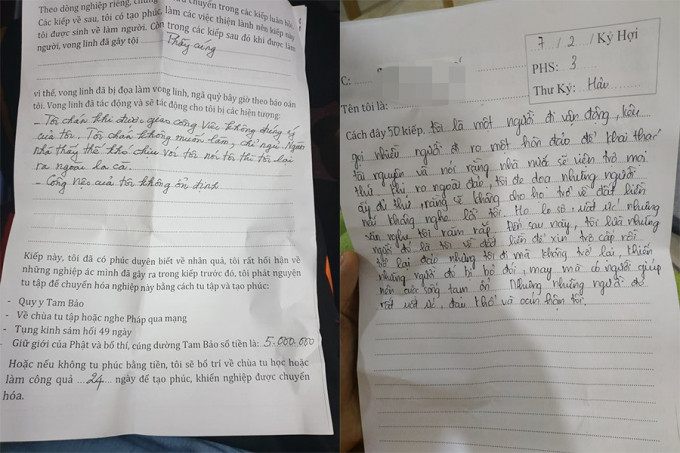 Theo dòng nghiệp riêng, chung chuyển trong các kiếp luân
Các kiếp về sau, tôi có tạo phúc, làm các việc thiện lành nên kiếp này
tôi được sinh về làm người. Còn trong các kiếp sau đó khi được làm
người, vong linh đã gây tội Thầy cúng
vì thế, vong linh đã bị đọa làm vong linh, ngã quỷ bây giờ theo báo oán
tôi. Vong linh đã tác động và sẽ tác động cho tôi bị các hiện tượng:
- Tôi chán khi được quan công việc không đúng ý
của tôi. Tôi chán không muốn làm, chỉ ngủ. Người
nhà thấy thế khó chịu với tôi nói tôi thì tôi lại
ra ngoài la cà.
- Công việc của tôi không ổn định
Kiếp này, tôi đã có phúc duyên biết về nhân quả, tôi rất hối hận về
những nghiệp ác mình đã gây ra trong kiếp trước đó, tôi phát nguyện
tu tập để chuyển hóa nghiệp này bằng cách tu tập và tạo phúc:
- Quy y Tam Bảo
- Về chùa tu tập hoặc nghe Pháp qua mạng
- Tụng kinh sám hối 49 ngày
- Giữ giới của Phật và bố thí, cúng dường Tam Bảo số tiền là: 5.000.000
Hoặc nếu không tu phúc bằng tiền, tôi sẽ bố trí về chùa tu học hoặc
làm công quả 24 ngày để tạo phúc, khiến nghiệp được chuyển
hóa.
7/2/ Kỷ Hợi
PHS: 3
Thư Ký: Hải
C:
Tên tôi là:
Cách đây 50 kiếp, tôi là một người đi vận động, kêu
gọi nhiều người đi ra một hòn đảo để khai thác
tài nguyên và nói rằng nhà nước sẽ viện trợ mọi
thứ, khi ra ngoài đảo, tôi đe dọa những người
ấy đủ thứ, rằng sẽ không cho họ trở về đất liền
nếu không nghe lời tôi. Họ lo sợ, uất ức nhưng
vẫn nghe tôi răm rắp. Đến sau này, tôi lừa những
người đó là tôi về đất liền để xin trợ cấp rồi
trở lại đảo nhưng tôi đi mà không trở lại, khiến
những người đó bị bỏ đói, may mà có người giúp
nên cuộc sống tạm ổn. Nhưng những người đó
rất uất ức, đau khổ và oán hận tôi.